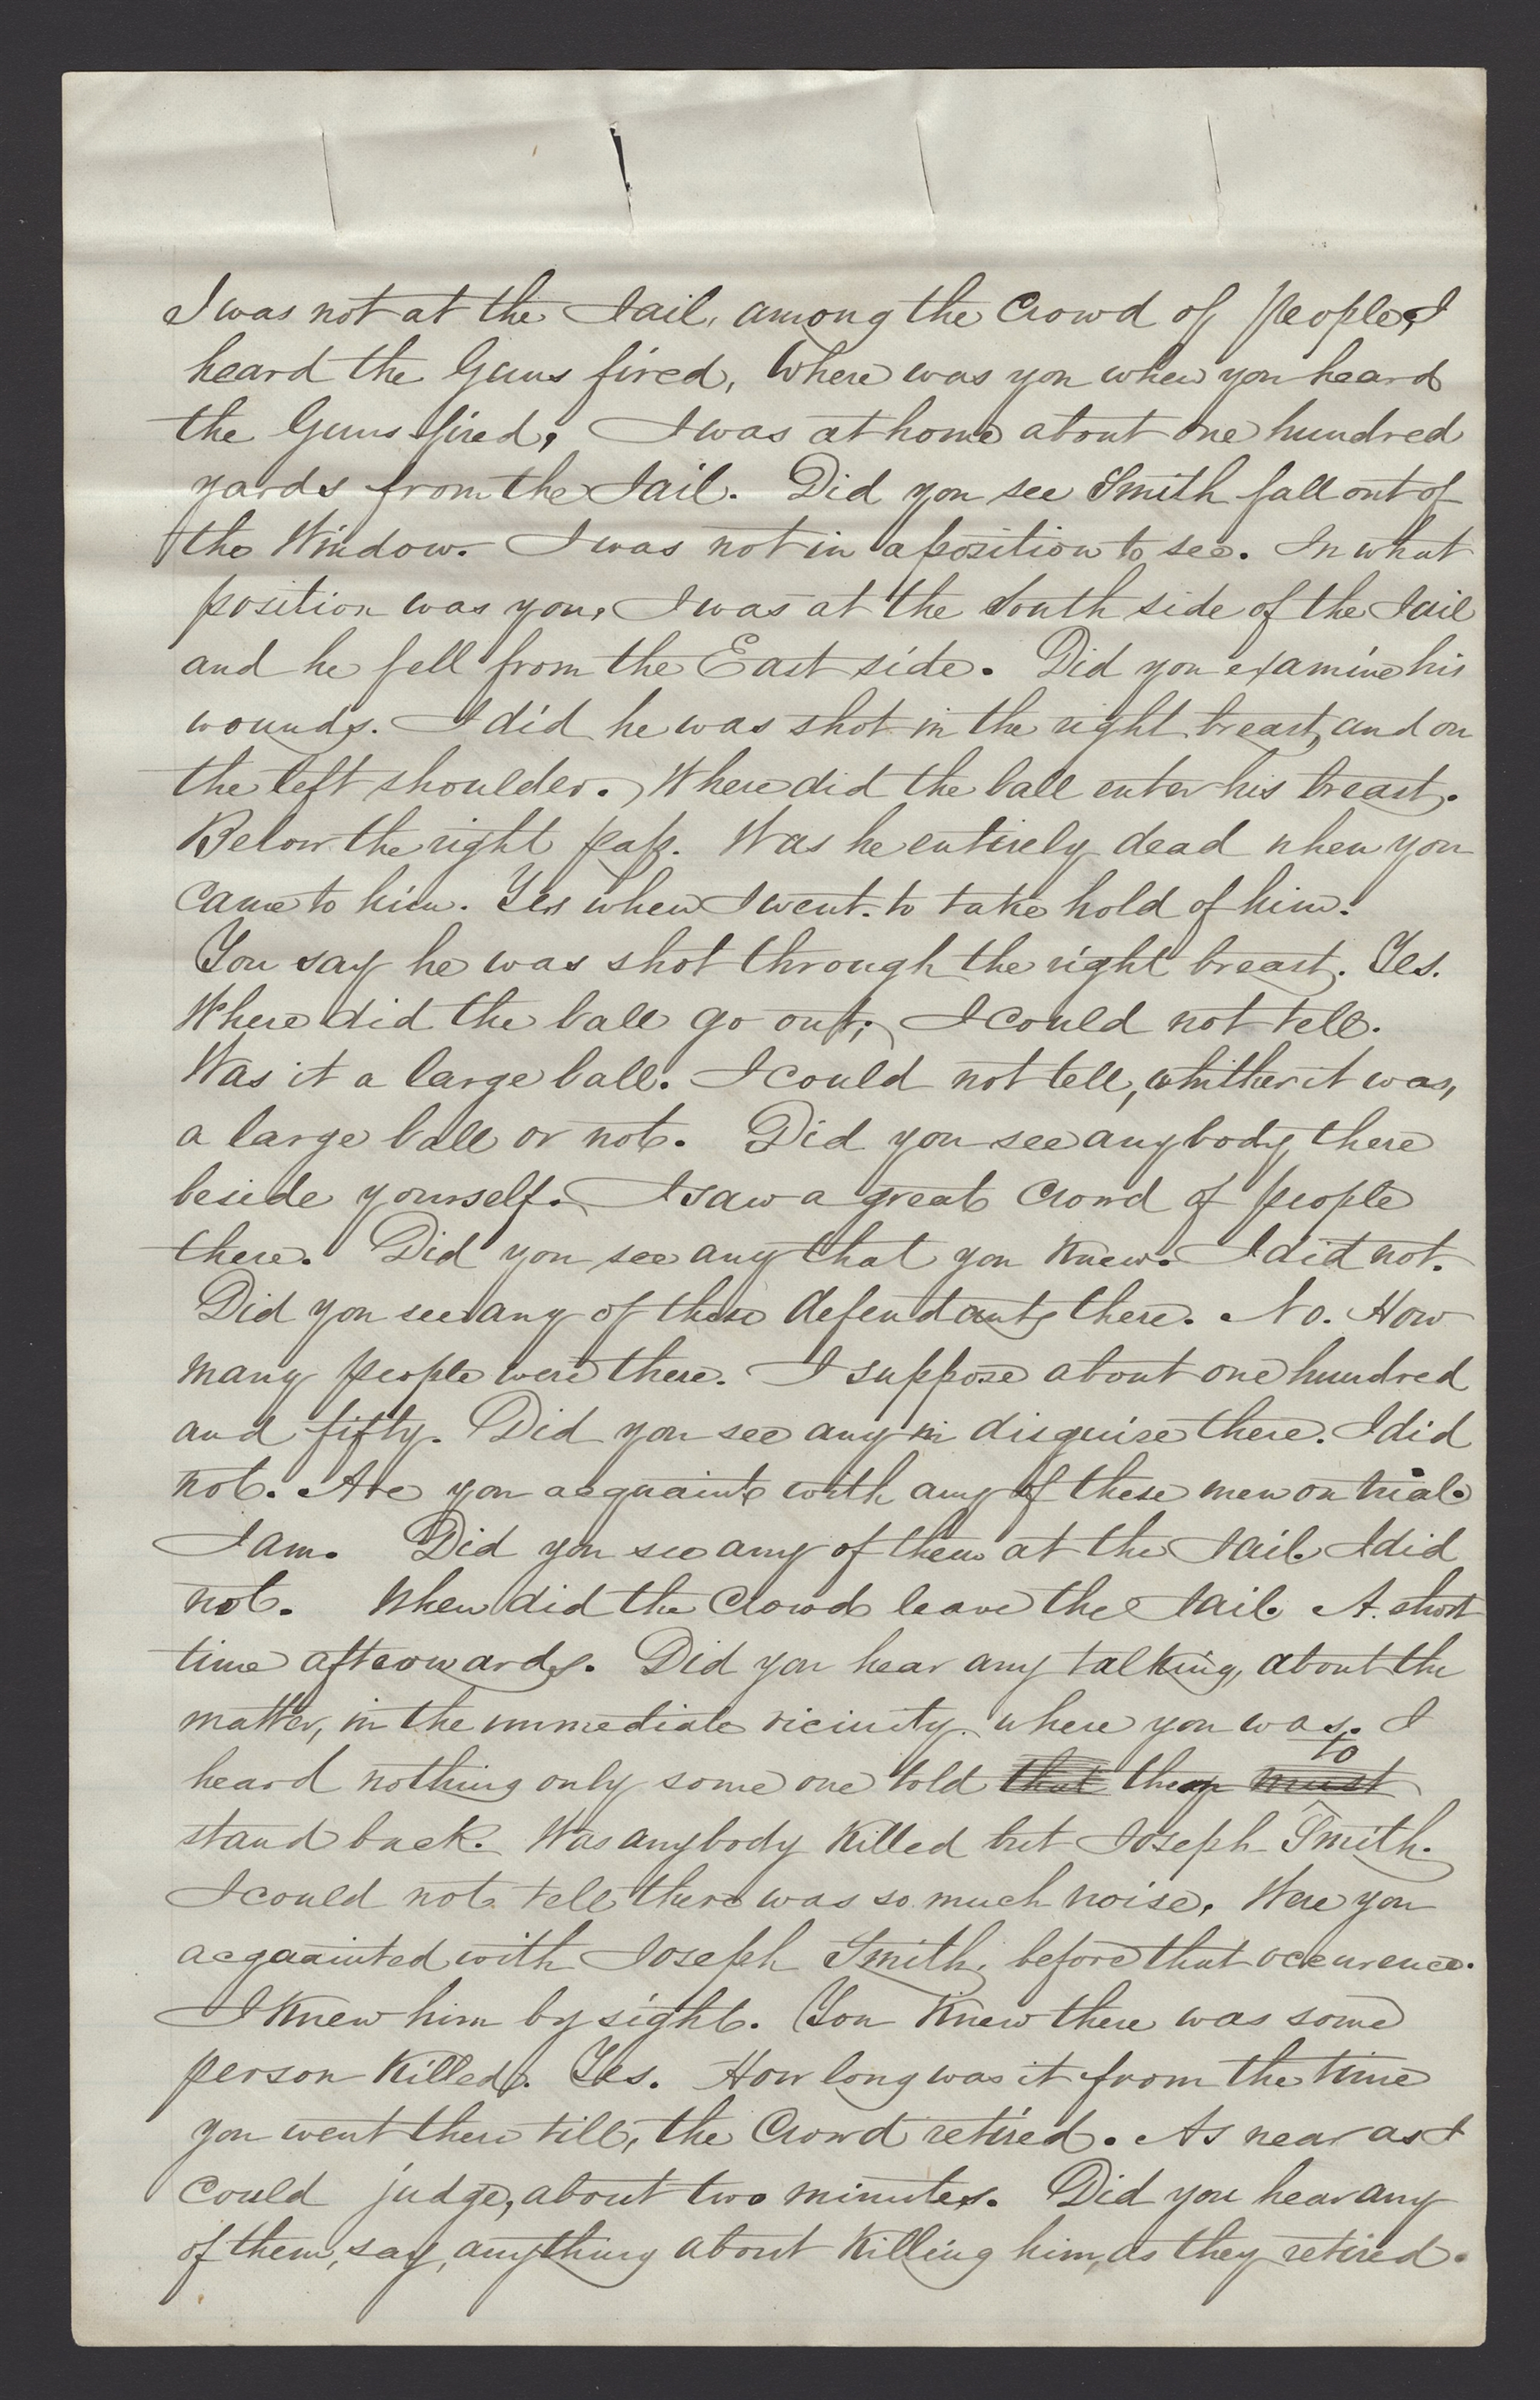 I was not at the Jail, among the Crowd of people, I
heard the Guns fired, Where was you when you heard
the Guns fired, I was at home about one hundred
yards from the Jail. Did you see Smith fall out of
the Window. I was not in a position to see. In what
position was you, I was at the South side of the Jail
and he fell from the East side. Did you examine his
wounds. I did he was shot in the right breast, and on
the left shoulder. Where did the ball enter his breast.
Below the right pap. Was he entirely dead when you
came to him. Yes when I went to take hold of him.
You say he was shot through the right breast. Yes.
Where did the ball go out; I could not tell.
Was it a large ball. I could not tell, whither it was,
a large ball or not. Did you see anybody there
beside yourself. I saw a great Crowd of people
there. Did you see any that you knew. I did not.
Did you see any of these defendants there. No. How
many people were there. I suppose about one hundred
and fifty. Did you see any in disguise there. I did
not. Are you acquaint with any of these men on trial.
I am. Did you see any of them at the Jail. I did
not. When did the Crowd leave the Jail. A short
time afterowards. Did you hear any talking, about the
matter, in the immediate vicinity where you was. I
heard nothing only some one told that them must to
stand back. Was anybody killed but Joseph Smith.
I could not tell there was so much noise, Were you
acquainted with Joseph Smith, before that occurence.
I knew him by sight. You knew there was some
person killed. Yes. How long was it from the time
you went there till, the Crowd retired. As near as I
could judge, about two minutes. Did you hear any
of them, say, anything about killing him, as they retired.